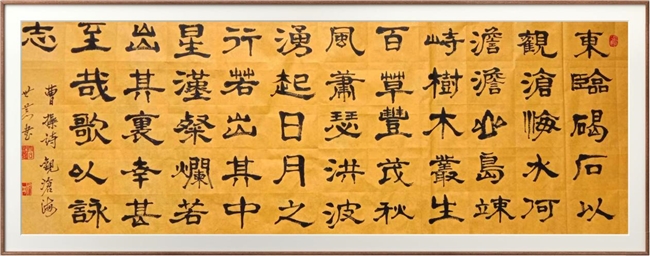 東臨碣石以
觀滄海水何
澹澹山島竦
峙樹木叢生
百草豐茂秋
風蕭瑟洪波
湧起日月之
行若出其中
星漢粲爛若
出其裏幸甚
至哉歌以詠
志
曹操詩觀滄海
書